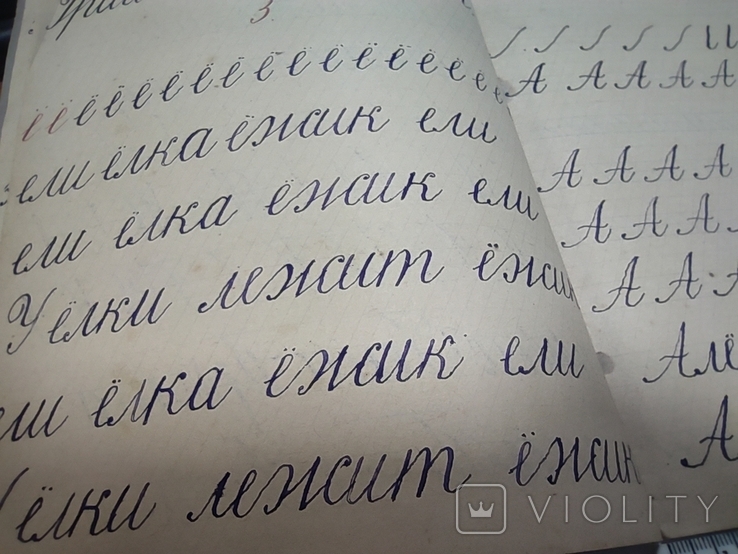 3.
ё ё ё ё ё ё ё ё ё ё ё ё ё ё ё ё ё
ели ёлка ёжик ели
ели ёлка ёжик ели
У ёлки лежит ёжик
ели ёлка ёжик ели
У ёлки лежит ёжик
А А А А А
А А А А
А А А
А А А
Алё
А
VIOLITY